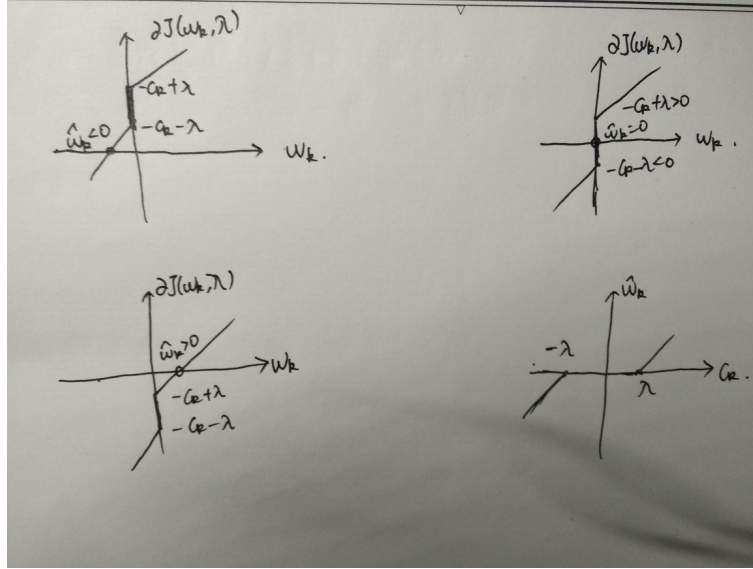 ∂J(ωk,λ)
-Ck+λ
-Ck-λ
ω̂k<0
ωk.
∂J(ωk,λ)
-Ck+λ>0
ω̂k=0
ωk.
-Ck-λ<0
∂J(ωk,λ)
ω̂k>0
ωk
-Ck+λ
-Ck-λ
ω̂k
-λ
λ
Ck.